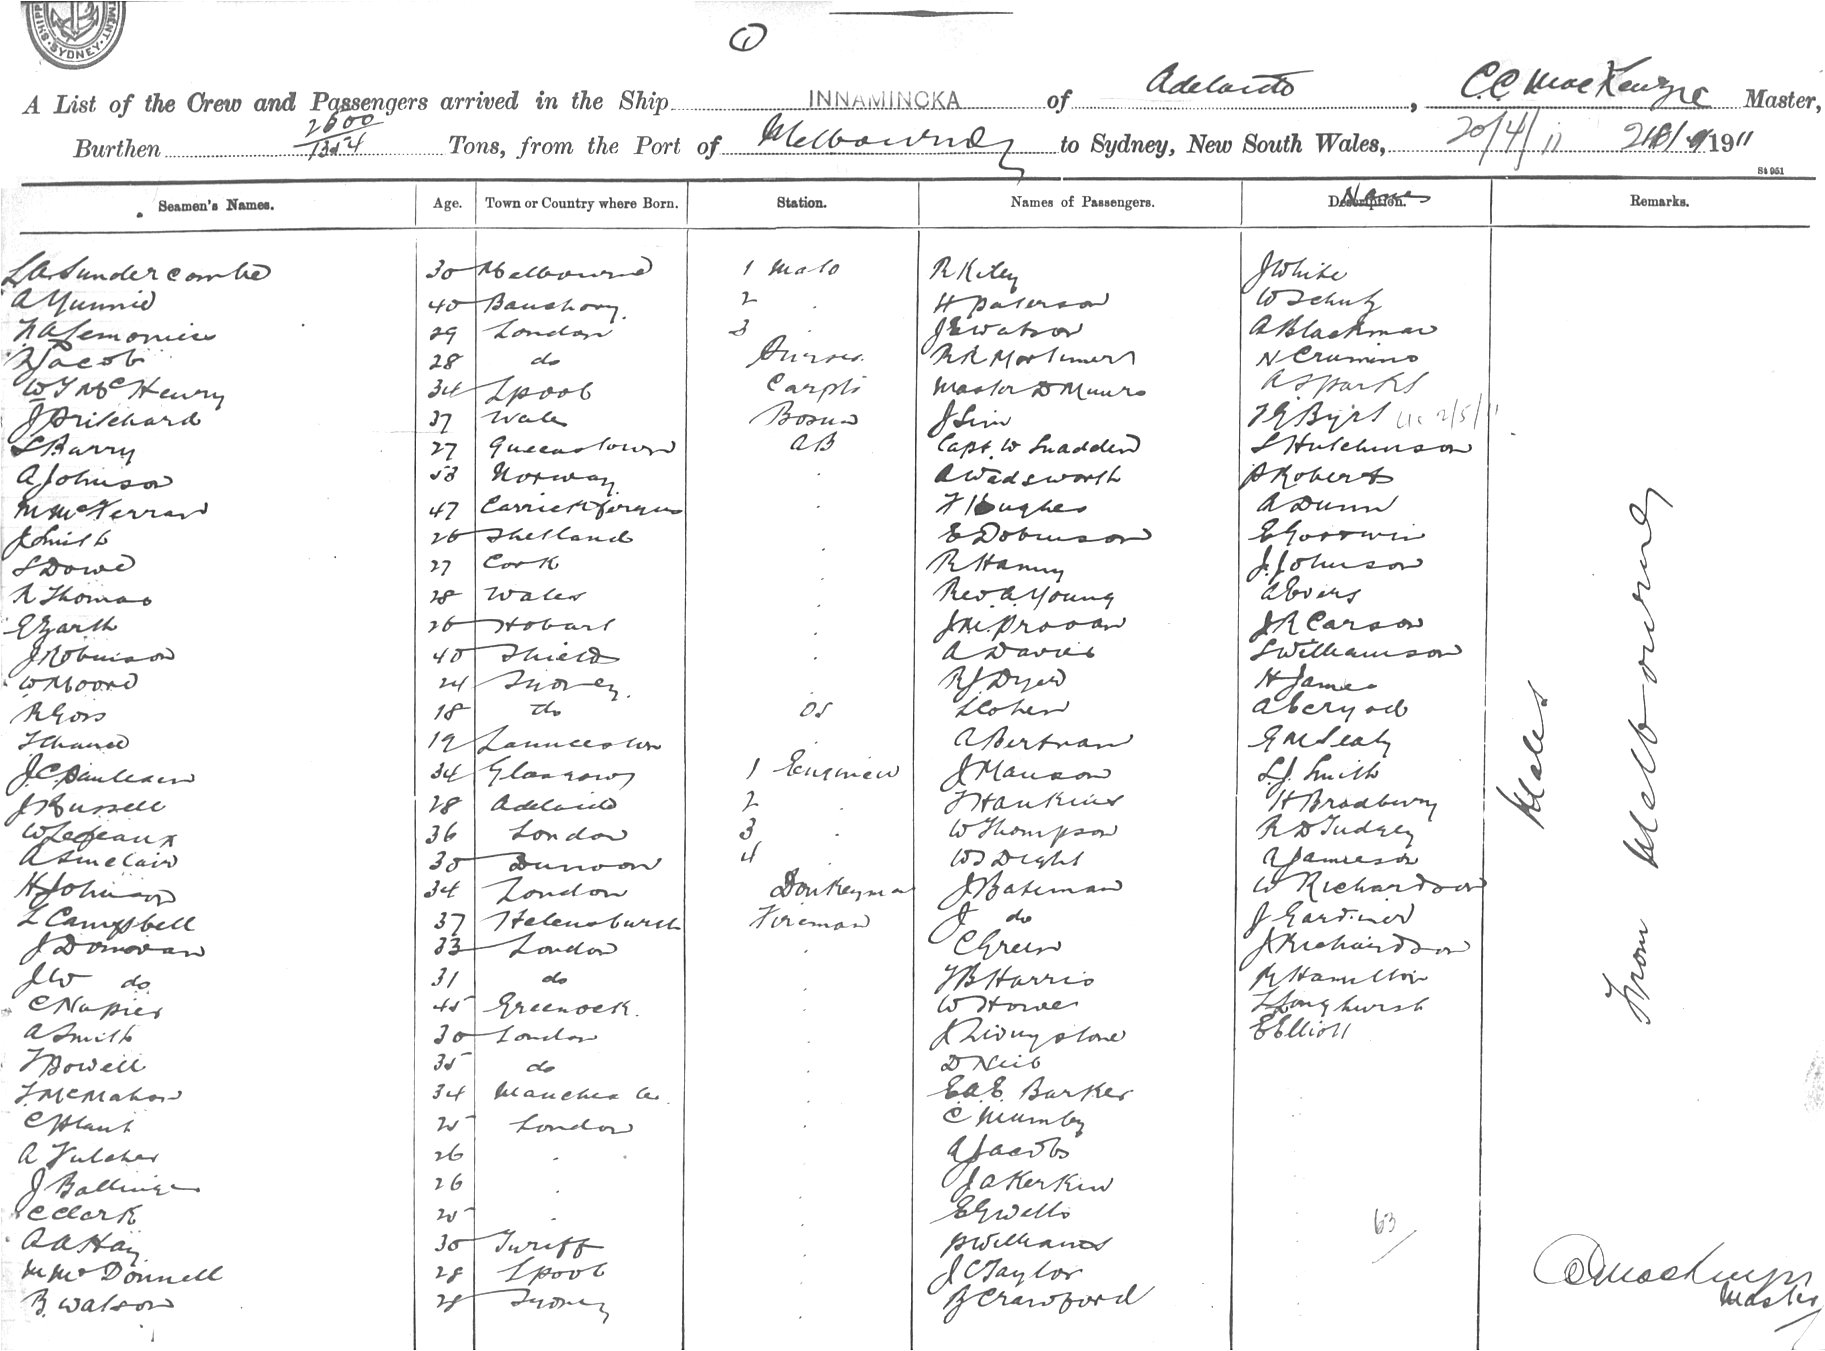 SYDNEY
1
A List of the Crew and Passengers arrived in the Ship INNAMINCKA of Adelaide, C.C. MacKenzie Master,
Burthen 2500 / 1354 Tons, from the Port of Melbourne to Sydney, New South Wales, 20/4/11 1911
St 951
Seamen's Names. Age. Town or Country where Born. Station. Names of Passengers. Description. Names Remarks.
30 Melbourne 1 Mate R Kiley J White
40 Banchory. 2 . H Paterson W Schutz
29 London 3 . J E Watson A Blackman
R Jacob 28 do R R Mortimer N Crumino
W T McHenry 34 Lpool Carptr Master D Munro A Sparks
J Pritchard 37 Wales Bosun J Sim 2/5/11
S Barry 27 Queenstown AB Capt. W Snadden S Hutchinson
A Johnson 53 Norway . A Wadsworth P Roberts
M McKerran 47 Carrickfergus . F Hughes A Dunn
J Smith 26 Shetland . E Dobinson E Goodwin
S Dowe 27 Cork . R Hanny J. Johnson
R Thomas 28 Wales . Rev. A. Young A Evers
26 Hobart . J.M. Provan J R Carson
J Robinson 40 Shields . A Davies S Williamson
W Moore 24 Sydney. R J Dyer H James
R Goss 18 do OS L Cohen
T Chance 19 Launceston . A Bertram
34 Glasgow 1 Engineer J Manson S.J. Smith
J Russell 28 Adelaide 2 . T Hankins H Bradbury
W Lejeaux 36 London 3 . W Thompson R D Tudgey
A Sinclair 30 Dunoon 4 . W S Dight A Jamieson
H Johnson 34 London Donkeyman J Bateman W Richardson
L Campbell 37 Helensburgh Fireman J do J Gardiner
J Donovan 33 London . C Green J Richardson
J W do 31 do . F B Harris R Hamilton
C Napier 45 Greenock. . W Howe Longhurst
A Smith 30 London . J Livingstone E Elliott
T Powell 35 do . D Neil
T. McMahon 34 Manchester . E.A.E. Barker
C Hunt 25 London . C Mumby
A Fulcher 26 . . A Jacobs
J Ballinger 26 . . J A Kerkin
C Clark 25 . . E G Wells
A A Hay 30 Turiff . P Williams
M McDonnell 28 Lpool . J C Taylor
B. Watson 28 Sydney . B Crawford
Males
From Melbourne
63
CC MacKenzie
Master